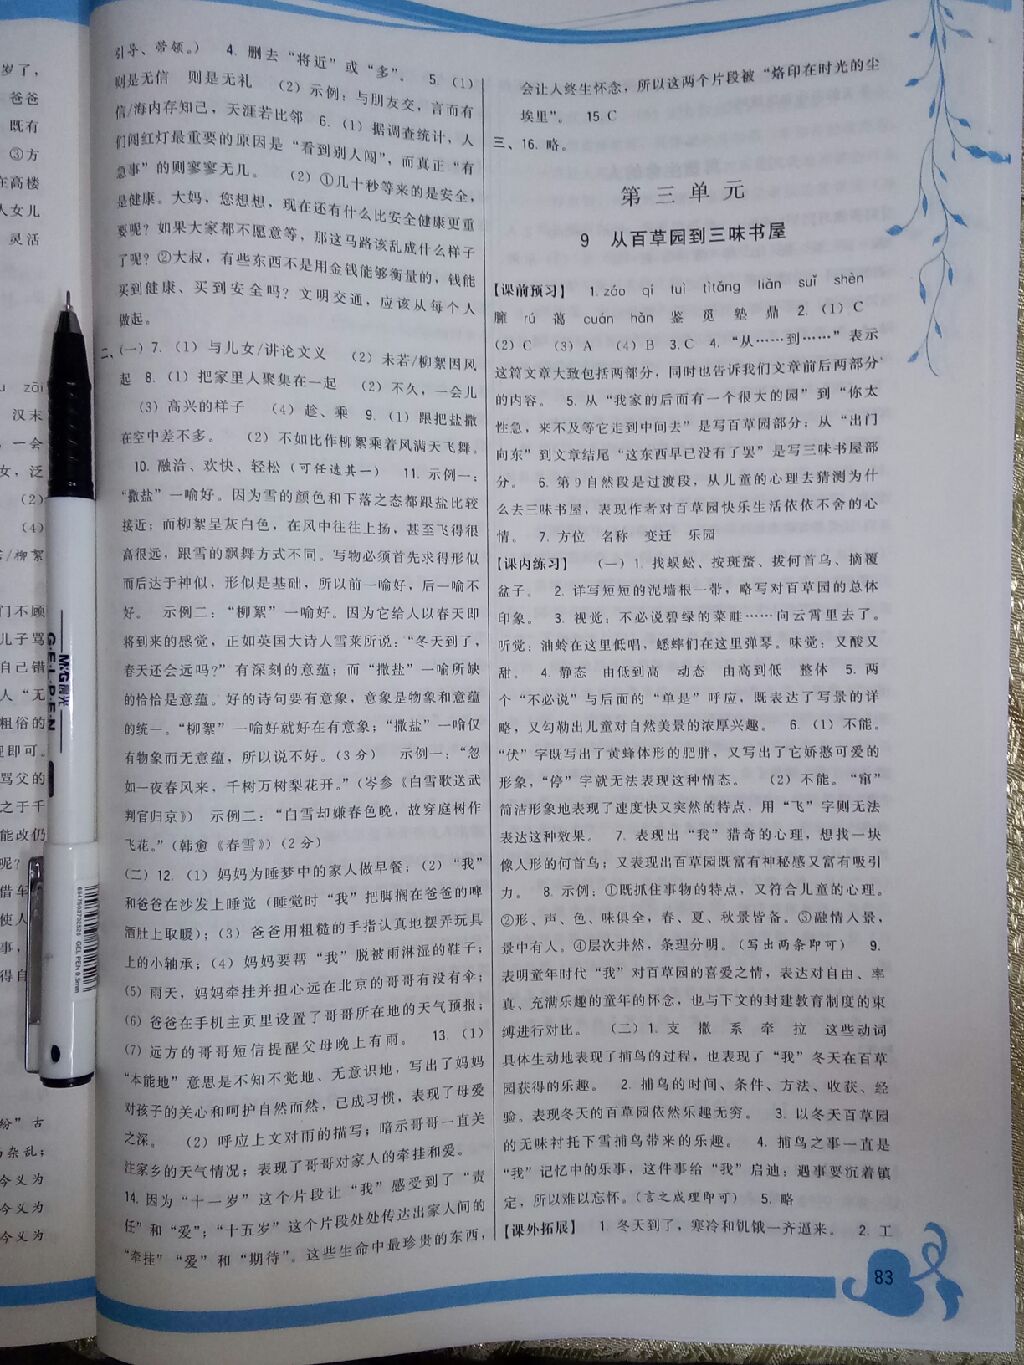 引导、带领。） 4. 删去“将近”或“多”。 5（1）
则是无信 则是无礼 （2）示例：与朋友交，言而有
信/海内存知己，天涯若比邻 6.（1）据调查统计，人
们闯红灯最重要的原因是“看到别人闯”，而真正“有
急事”的则寥寥无几。 （2）①几十秒等来的是安全，
是健康。大妈，您想想，现在还有什么比安全健康更重
要呢？如果大家都不愿意等，那这马路该乱成什么样子
了呢？②大叔，有些东西不是用金钱能够衡量的，钱能
买到健康、买到安全吗？文明交通，应该从每个人
做起。
二、（一）7.（1）与儿女/讲论文义 （2）未若/柳絮因风
起 8.（1）把家里人聚集在一起 （2）不久，一会儿
（3）高兴的样子 （4）趁、乘 9.（1）跟把盐撒
在空中差不多。 （2）不如比作柳絮乘着风满天飞舞。
10. 融洽、欢快、轻松（可任选其一） 11. 示例一：
“撒盐”一喻好。因为雪的颜色和下落之态都跟盐比较
接近；而柳絮呈灰白色，在风中往往上扬，甚至飞得很
高很远，跟雪的飘舞方式不同。写物必须首先求得形似
而后达于神似，形似是基础，所以前一喻好，后一喻不
好。 示例二：“柳絮”一喻好。因为它给人以春天即
将到来的感觉，正如英国大诗人雪莱所说：“冬天到了，
春天还会远吗？”有深刻的意蕴；而“撒盐”一喻所缺
的恰恰是意蕴。好的诗句要有意象，意象是物象和意蕴
的统一。“柳絮”一喻好就好在有意象；“撒盐”一喻仅
有物象而无意蕴，所以说不好。（3分） 示例一：“忽
如一夜春风来，千树万树梨花开。”（岑参《白雪歌送武
判官归京》） 示例二：“白雪却嫌春色晚，故穿庭树作
飞花。”（韩愈《春雪》）（2分）
（二）12.（1）妈妈为睡梦中的家人做早餐；（2）“我”
和爸爸在沙发上睡觉（睡觉时“我”把脚搁在爸爸的啤
酒肚上取暖）；（3）爸爸用粗糙的手指认真地摆弄玩具
上的小轴承；（4）妈妈要帮“我”脱被雨淋湿的鞋子；
（5）雨天，妈妈牵挂并担心远在北京的哥哥有没有伞；
（6）爸爸在手机主页里设置了哥哥所在地的天气预报；
（7）远方的哥哥短信提醒父母晚上有雨。 13.（1）
“本能地”意思是不知不觉地、无意识地，写出了妈妈
对孩子的关心和呵护自然而然，已成习惯，表现了母爱
之深。 （2）呼应上文对雨的描写；暗示哥哥一直关
注家乡的天气情况；表现了哥哥对家人的牵挂和爱。
14. 因为“十一岁”这个片段让“我”感受到了“责
任”和“爱”；“十五岁”这个片段处处传达出家人间的
“牵挂”“爱”和“期待”。这些生命中最珍贵的东西，
会让人终生怀念，所以这两个片段被“烙印在时光的尘
埃里”。 15 C
三、16. 略。
第三单元
9 从百草园到三味书屋
【课前预习】 1. záo qì tuì tìtǎng liǎn suī shèn
臃 rú 蒿 cuán hàn 鉴 觅 塾 鼎 2.（1）C
（2）C （3）A （4）B 3.C 4.“从……到……”表示
这篇文章大致包括两部分，同时也告诉我们文章前后两部分
的内容。 5. 从“我家的后面有一个很大的园”到“你太
性急，来不及等它走到中间去”是写百草园部分；从“出门
向东”到文章结尾“这东西早已没有了罢”是写三味书屋部
分。 6. 第9自然段是过渡段，从儿童的心理去猜测为什
么去三味书屋，表现作者对百草园快乐生活依依不舍的心
情。 7. 方位 名称 变迁 乐园
【课内练习】 （一）1. 找蜈蚣、按斑蝥、拔何首乌、摘覆
盆子。 2. 详写短短的泥墙根一带，略写对百草园的总体
印象。 3. 视觉：不必说碧绿的菜畦……向云霄里去了。
听觉：油蛉在这里低唱，蟋蟀们在这里弹琴。味觉：又酸又
甜。 4. 静态 由低到高 动态 由高到低 整体 5. 两
个“不必说”与后面的“单是”呼应，既表达了写景的详
略，又勾勒出儿童对自然美景的浓厚兴趣。 6.（1）不能。
“伏”字既写出了黄蜂体形的肥胖，又写出了它娇憨可爱的
形象，“停”字就无法表现这种情态。 （2）不能。“窜”
简洁形象地表现了速度快又突然的特点，用“飞”字则无法
表达这种效果。 7. 表现出“我”猎奇的心理，想找一块
像人形的何首乌；又表现出百草园既富有神秘感又富有吸引
力。 8. 示例：①既抓住事物的特点，又符合儿童的心理。
②形、声、色、味俱全，春、夏、秋景皆备。③融情入景，
景中有人。④层次井然，条理分明。（写出两条即可） 9.
表明童年时代“我”对百草园的喜爱之情，表达对自由、率
真、充满乐趣的童年的怀念，也与下文的封建教育制度的束
缚进行对比。 （二）1. 支 撒 系 牵 拉 这些动词
具体生动地表现了捕鸟的过程，也表现了“我”冬天在百草
园获得的乐趣。 2. 捕鸟的时间、条件、方法、收获、经
验。表现冬天的百草园依然乐趣无穷。 3. 以冬天百草园
的无味衬托下雪捕鸟带来的乐趣。 4. 捕鸟之事一直是
“我”记忆中的乐事，这件事给“我”启迪：遇事要沉着镇
定，所以难以忘怀。（言之成理即可） 5. 略
【课外拓展】 1. 冬天到了，寒冷和饥饿一齐逼来。 2. 工
83
岁了，
爸爸
既有
③方
在高楼
人女儿
灵活
zāi
汉末
一会
女，泛
（2）
（4）
/柳絮
们不顾
儿子骂
自己错
人“无
粗俗的
即可。
骂父的
之于千
能改仍
呢？
借车
使人
事，
得自
纷”古
杂乱；
今义为
今义为
今义为
M&G晨光
GEL PEN
GEL PEN 0.5mm